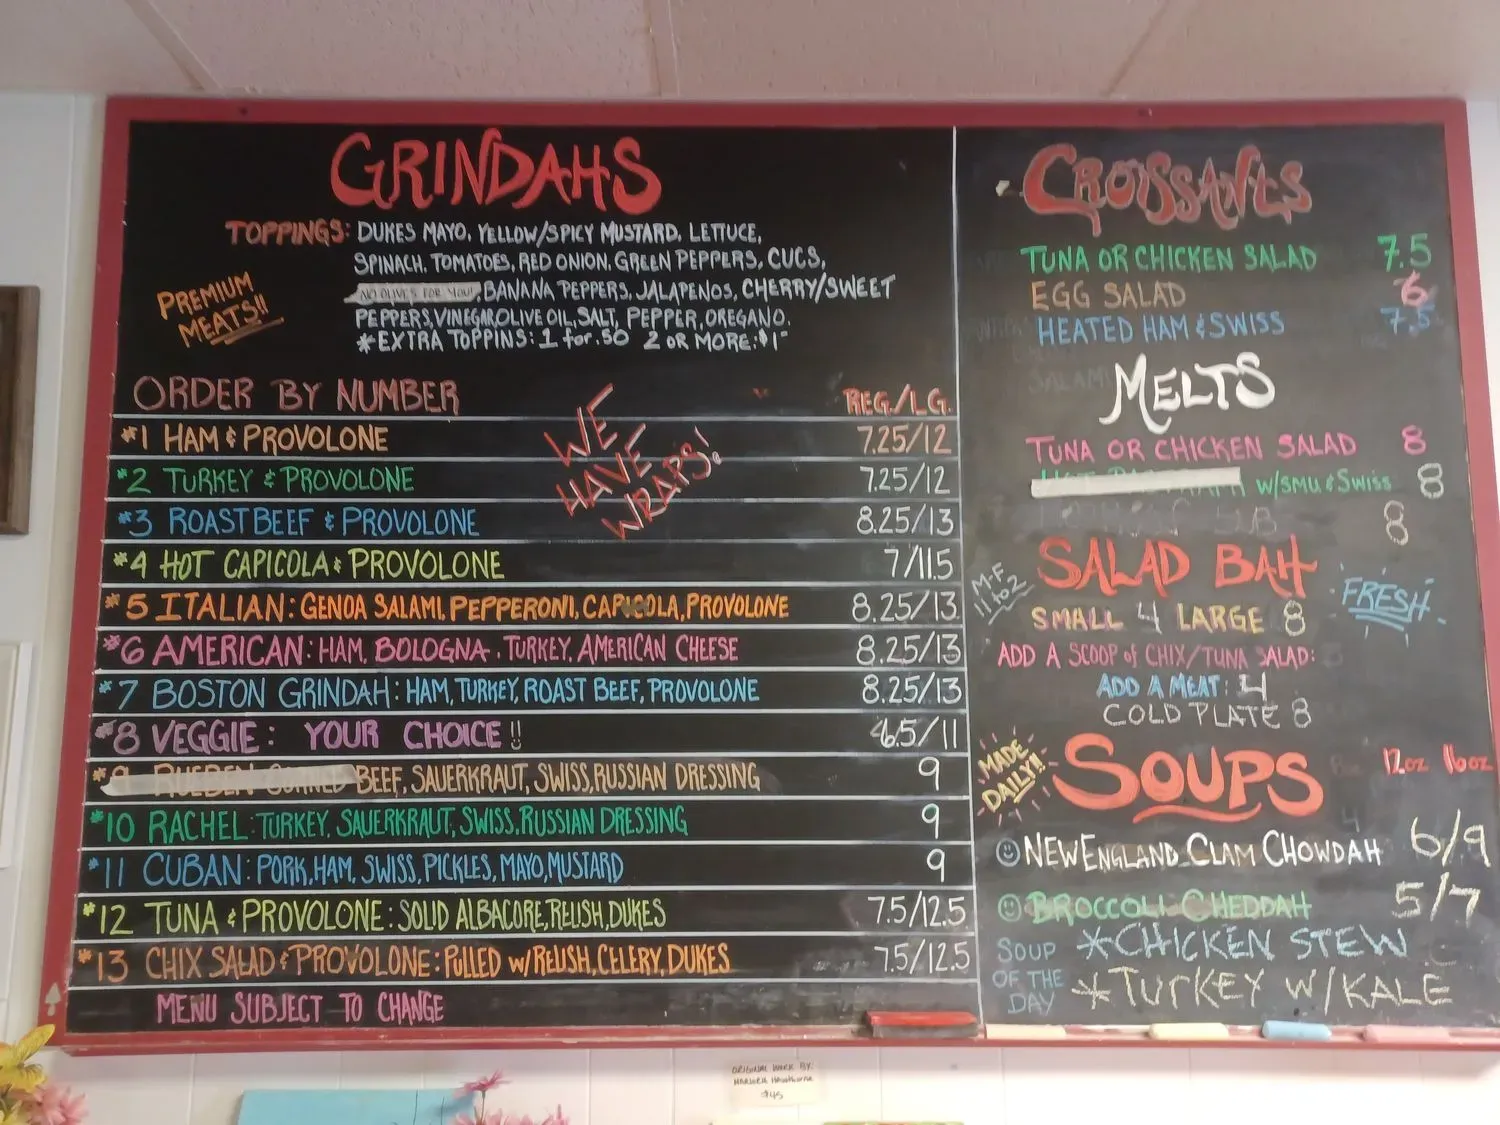 GRINDAHS
TOPPINGS: DUKES MAYO, YELLOW/SPICY MUSTARD, LETTUCE,
SPINACH, TOMATOES, RED ONION, GREEN PEPPERS, CUCS,
NO OLIVES FOR YOU!, BANANA PEPPERS, JALAPENOS, CHERRY/SWEET
PEPPERS, VINEGAR, OLIVE OIL, SALT, PEPPER, OREGANO.
*EXTRA TOPPINS: 1 for .50 2 OR MORE: $1-
PREMIUM
MEATS!!
ORDER BY NUMBER REG./LG.
WE
HAVE
WRAPS!
#1 HAM & PROVOLONE 7.25/12
#2 TURKEY & PROVOLONE 7.25/12
#3 ROAST BEEF & PROVOLONE 8.25/13
#4 HOT CAPICOLA & PROVOLONE 7/11.5
#5 ITALIAN: GENOA SALAMI, PEPPERONI, CAPICOLA, PROVOLONE 8.25/13
#6 AMERICAN: HAM, BOLOGNA, TURKEY, AMERICAN CHEESE 8.25/13
#7 BOSTON GRINDAH: HAM, TURKEY, ROAST BEEF, PROVOLONE 8.25/13
#8 VEGGIE: YOUR CHOICE!! 6.5/11
#9 RUEBEN CORNED BEEF, SAUERKRAUT, SWISS, RUSSIAN DRESSING 9
#10 RACHEL: TURKEY, SAUERKRAUT, SWISS, RUSSIAN DRESSING 9
#11 CUBAN: PORK, HAM, SWISS, PICKLES, MAYO, MUSTARD 9
#12 TUNA & PROVOLONE: SOLID ALBACORE, RELISH, DUKES 7.5/12.5
#13 CHIX SALAD & PROVOLONE: PULLED W/RELISH, CELERY, DUKES 7.5/12.5
MENU SUBJECT TO CHANGE
CROISSANTS
TUNA OR CHICKEN SALAD 7.5
EGG SALAD 6
HEATED HAM & SWISS 7.5
MELTS
TUNA OR CHICKEN SALAD 8
W/SMU & SWISS 8
8
SALAD BAH
M-F
11 to 2
FRESH
SMALL 4 LARGE 8
ADD A SCOOP of CHIX/TUNA SALAD:
ADD A MEAT: 4
COLD PLATE 8
MADE
DAILY!!
SOUPS 12oz 16oz
NEW ENGLAND CLAM CHOWDAH 6/9
BROCCOLI CHEDDAH 5/7
SOUP
OF THE
DAY
*CHICKEN STEW
*TURKEY W/KALE
ORIGINAL WORK BY:
$45